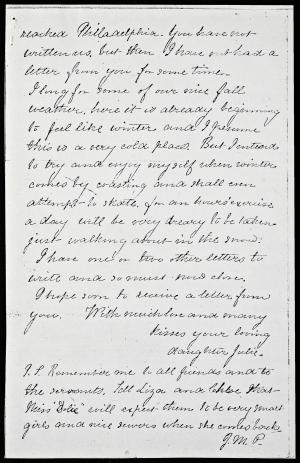 reached Philadelphia. You have not
written us, but then I have not had a
letter from you for some time.
I long for some of our nice fall
weather, here it is already beginning
to feel like winter and I presume
this is a very cold place. But I intend
to try and enjoy myself when winter
comes by coasting and shall even
attempt to skate, for an hours exercise
a day will be very dreary to be taken
just walking about in the snow.
I have one or two other letters to
write and so must now close.
I hope soon to receive a letter from
you. With much love and many
kisses your loving
daughter Julie.
P.S. Remember me to all friends and to
the servants. Tell Liza and Chloe that
Miss "Dulie" will expect them to be very smart
girls and nice sewers when she comes back.
J. M. P.